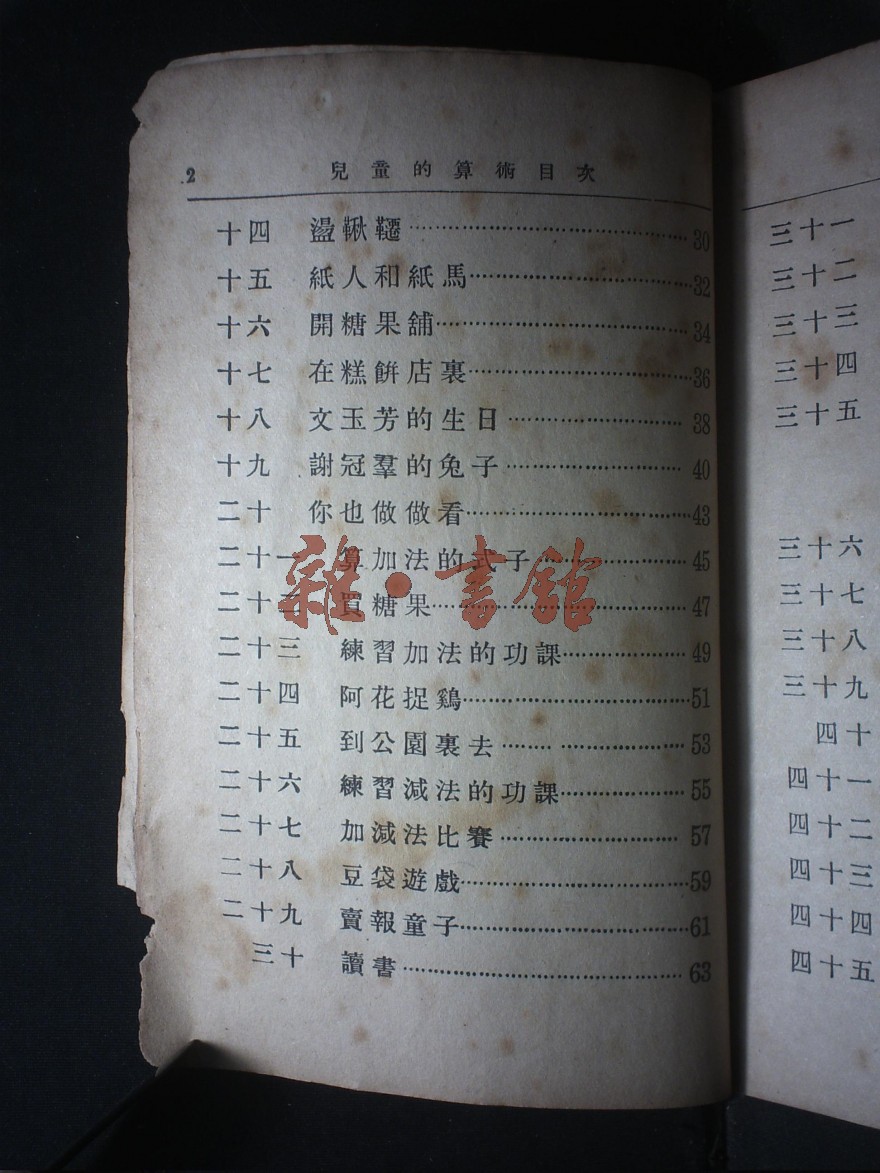 2 兒童的算術目次
十四 盪鞦韆……………………30
十五 紙人和紙馬……………………32
十六 開糖果舖……………………34
十七 在糕餅店裏……………………36
十八 文玉芳的生日……………………38
十九 謝冠羣的兔子……………………40
二十 你也做做看……………………43
二十一 算加法的式子……………………45
二十二 買糖果……………………47
二十三 練習加法的功課……………………49
二十四 阿花捉鷄……………………51
二十五 到公園裏去……………………53
二十六 練習減法的功課……………………55
二十七 加減法比賽……………………57
二十八 豆袋遊戲……………………59
二十九 賣報童子……………………61
三十 讀書……………………63
雜·書館
三十一
三十二
三十三
三十四
三十五
三十六
三十七
三十八
三十九
四十
四十一
四十二
四十三
四十四
四十五